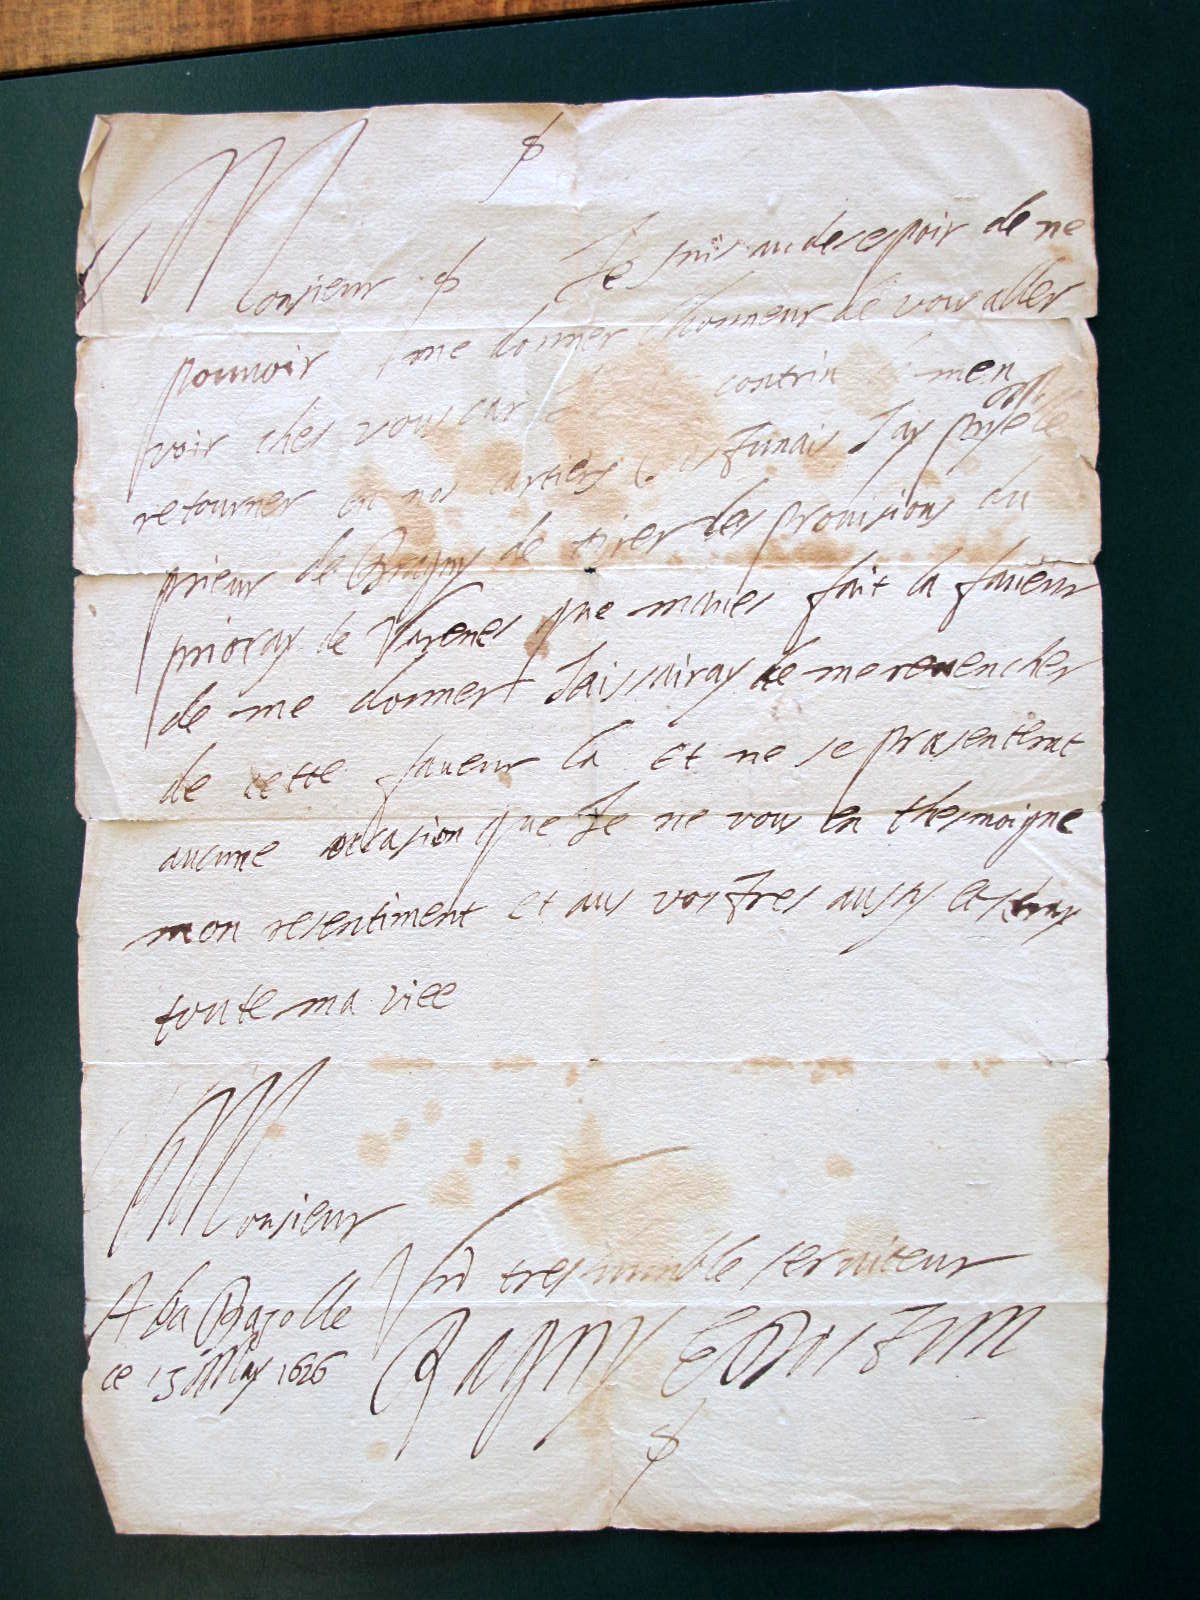 Monsieur Je suis au desespoir de ne
pouuoir me donner l'honneur de vous aller
voir ches vous car contrin men
retourner en nos cartiers Jay prye le
prieur de Bragny de tirer les prouisions du
prioray de Varenes que maues fait la faueur
de me donner Jaissairay de me reuencher
de cette faueur la et ne se prasenterat
aucune occasion que Je ne vous en thesmoigne
mon resentiment et aus vostres aussy et seray
toute ma viee
Monsieur
Vre tres humble seruiteur
A La Bazolle
ce 15 May 1626